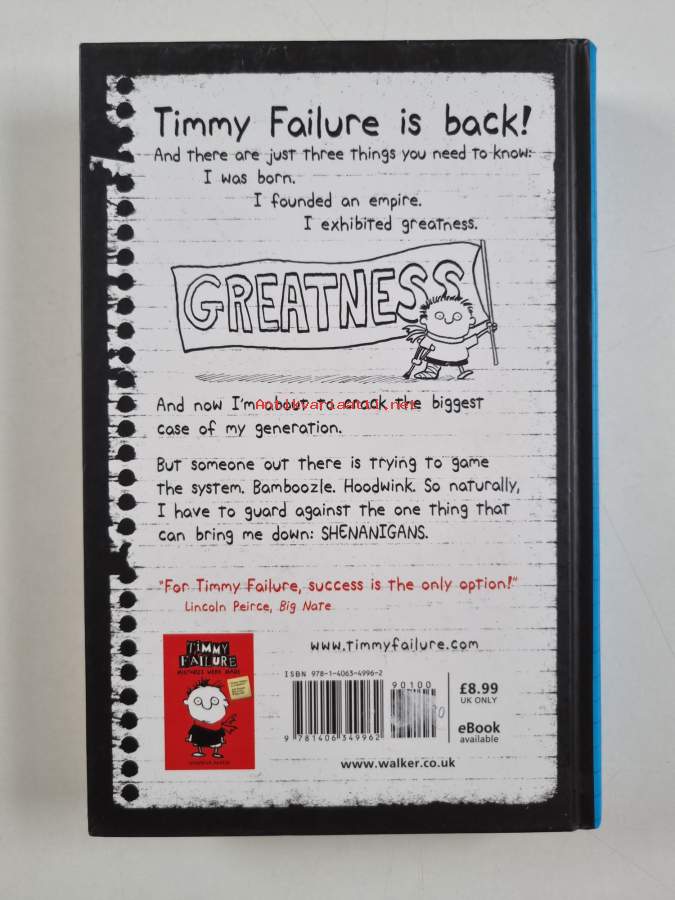 Timmy Failure is back!
And there are just three things you need to know:
I was born.
I founded an empire.
I exhibited greatness.
GREATNESS
And now I'm about to crack the biggest
Antikvariaatti.net
case of my generation.
But someone out there is trying to game
the system. Bamboozle. Hoodwink. So naturally,
I have to guard against the one thing that
can bring me down: SHENANIGANS.
"For Timmy Failure, success is the only option!"
Lincoln Peirce, Big Nate
TIMMY
FAILURE
MISTAKES WERE MADE
www.timmyfailure.com
ISBN 978-1-4063-4996-2
90100
9 781406 349962
£8.99
UK ONLY
eBook
available
www.walker.co.uk